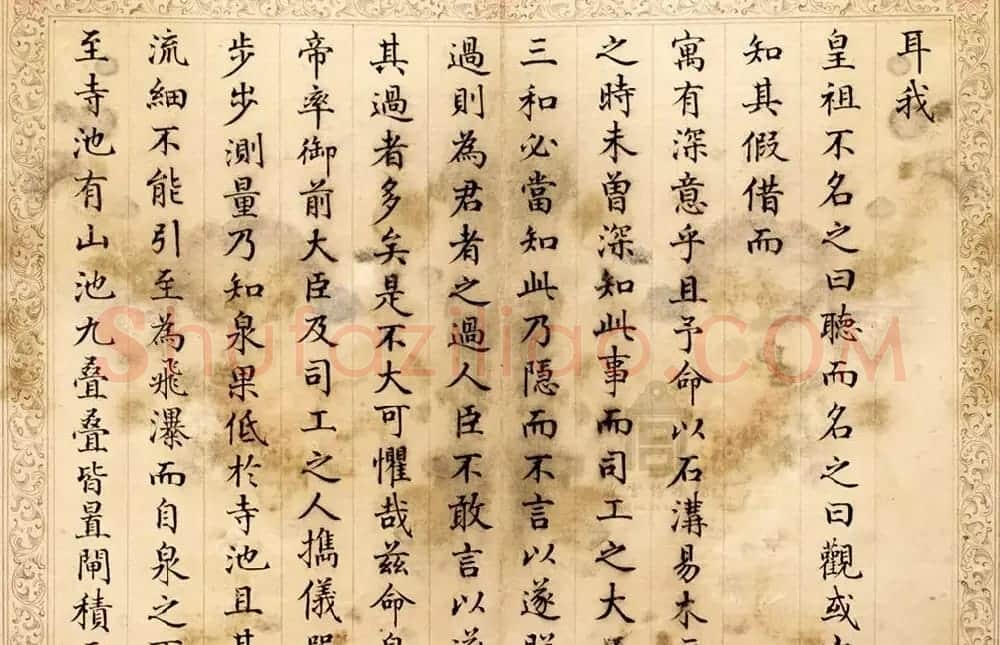 耳我
皇祖不名之曰聽而名之曰觀或
知其假借而
寓有深意乎且予命以石溝易木
之時未曾深知此事而司工之大
三和必當知此乃隱而不言以遂
過則為君者之過人臣不敢言以
其過者多矣是不大可懼哉茲命
帝率御前大臣及司工之人攜儀
步步測量乃知泉果低於寺池且
流細不能引至為飛瀑而自泉之
至寺池有山池九疊疊皆置閘積
Shufaziliao.COM